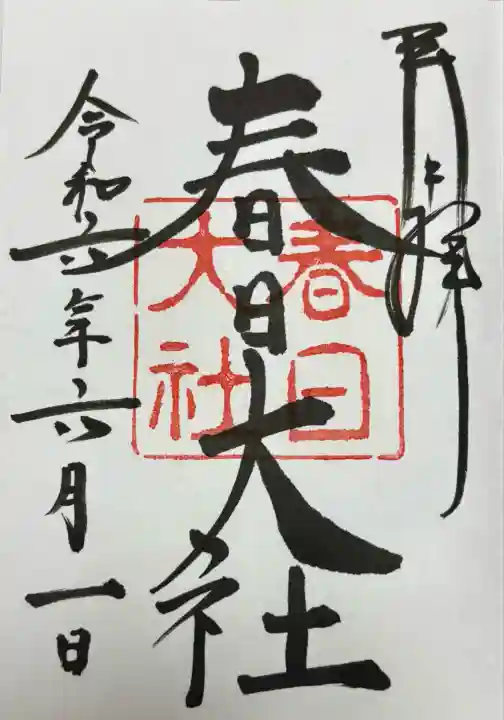 春日大社
春日
大社
令和六年六月一日